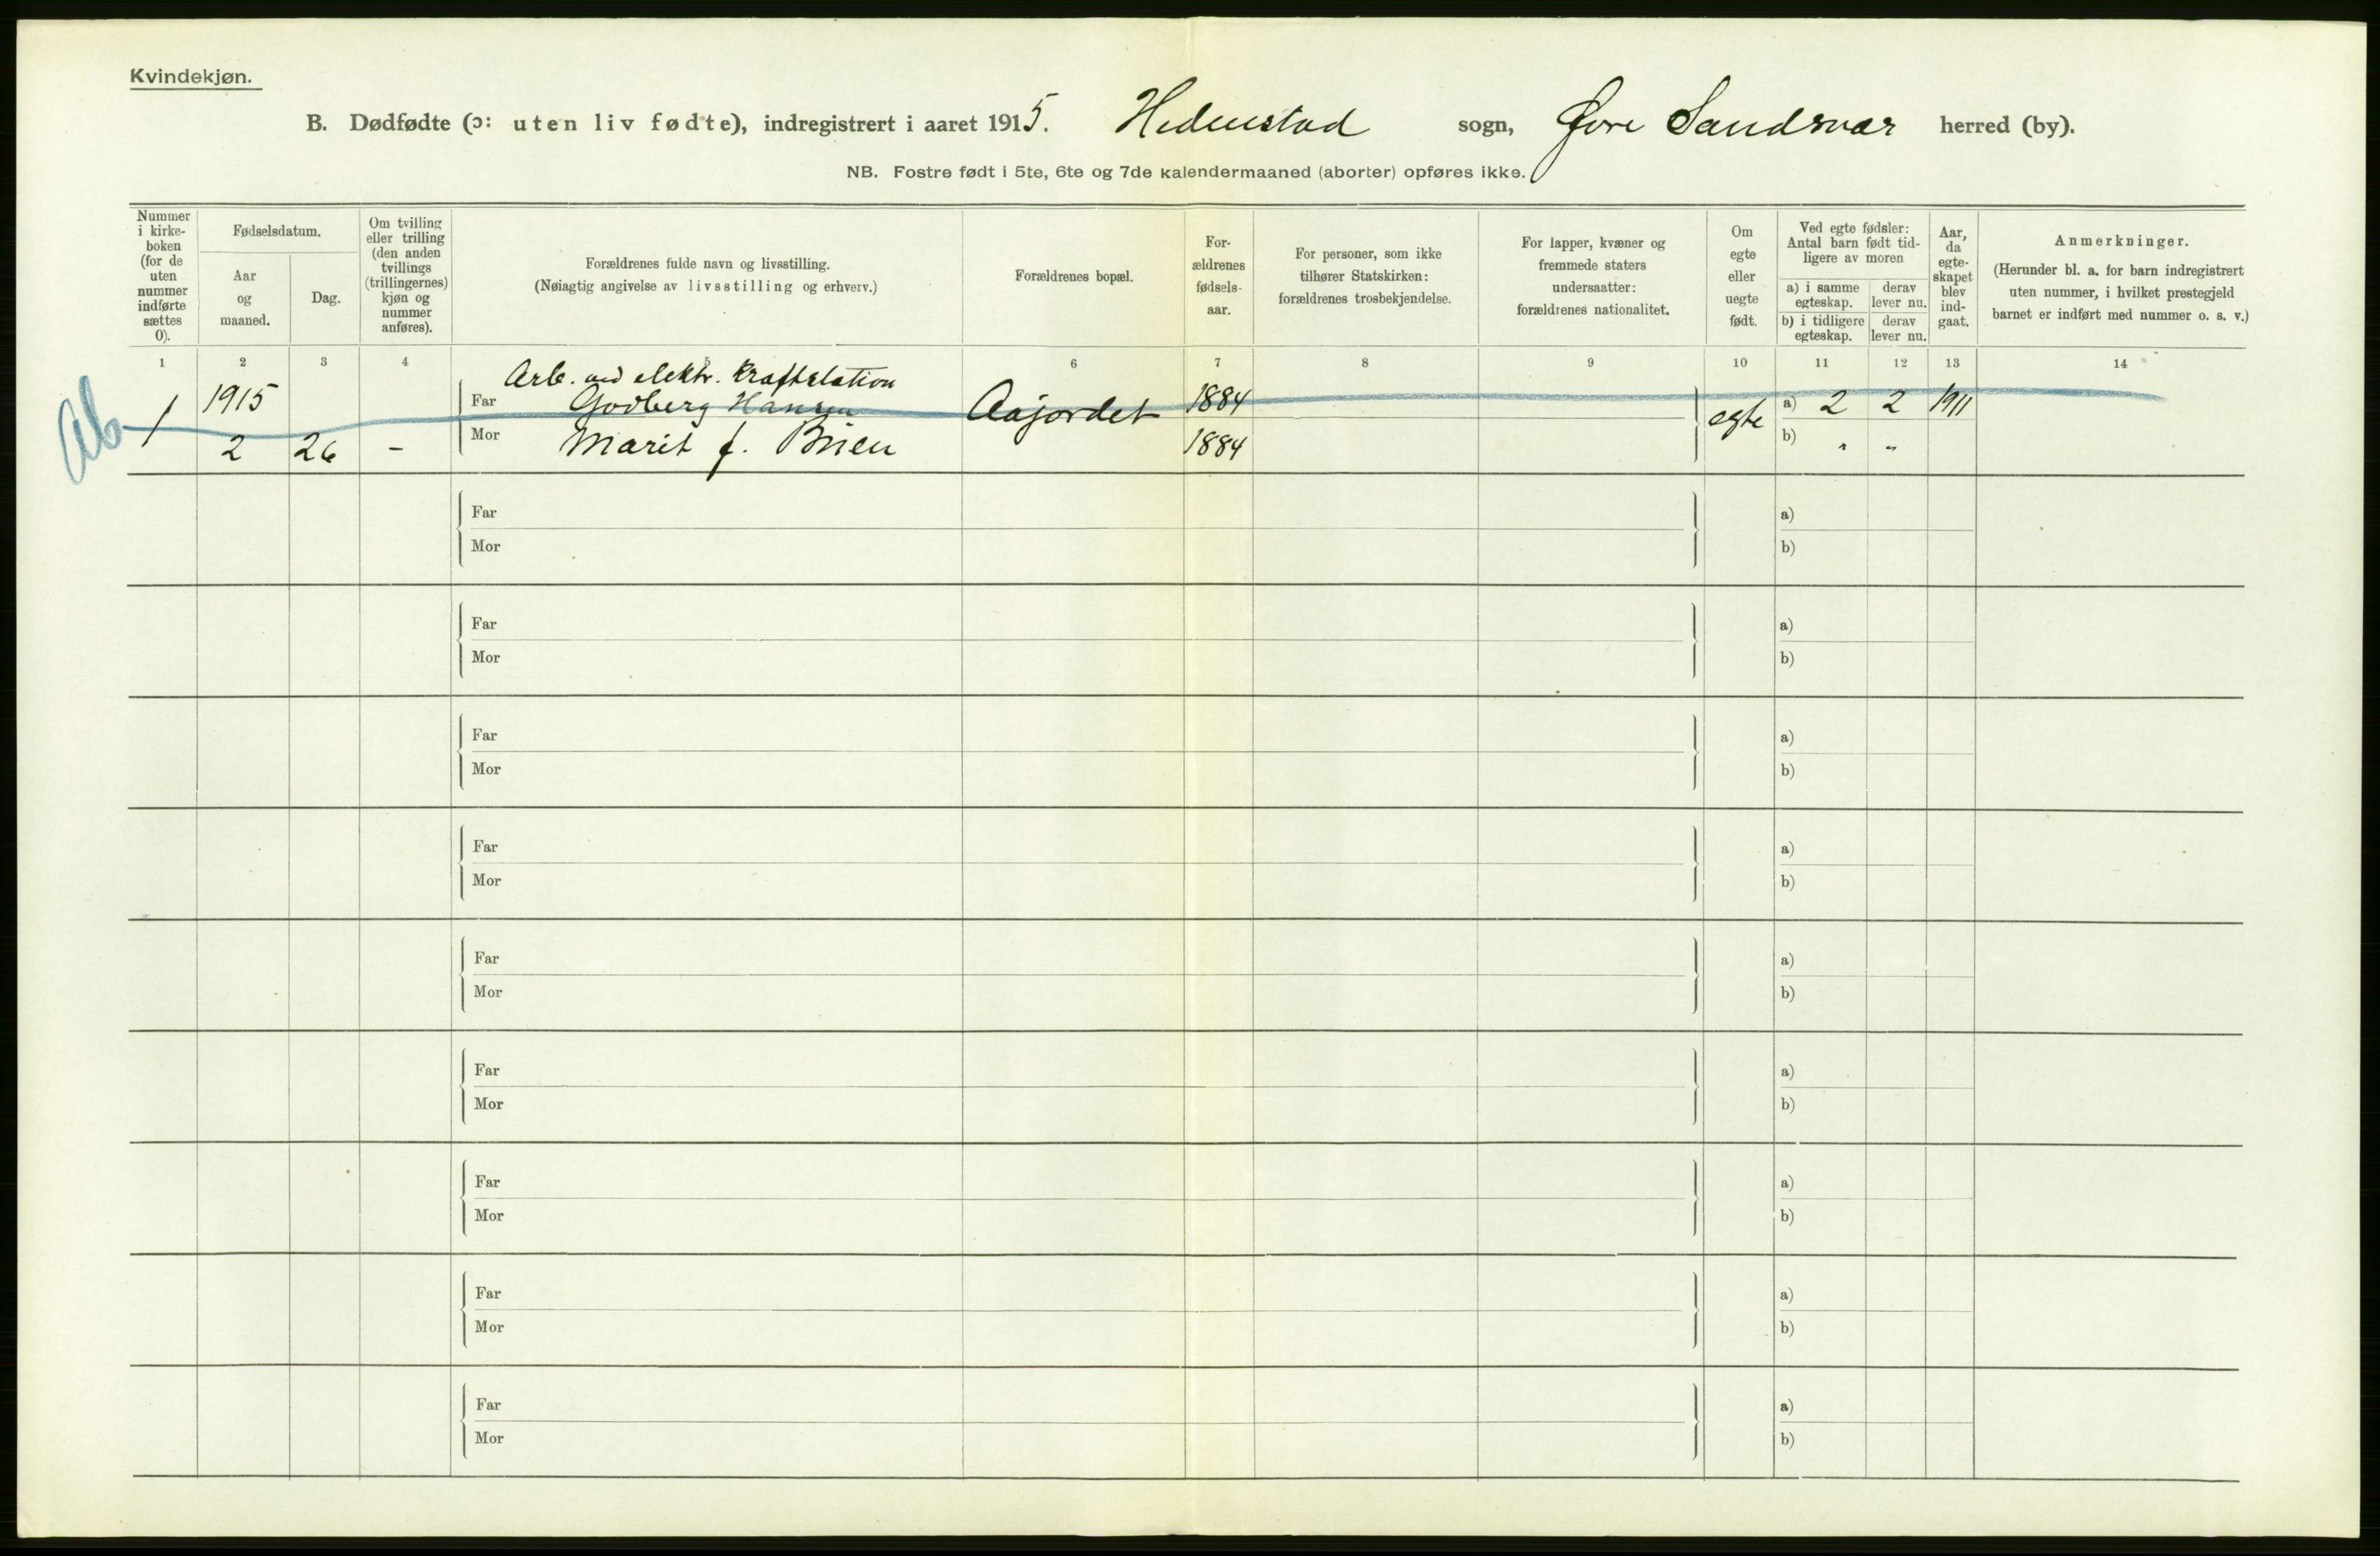 Kvindekjøn.
B. Dødfødte (ɔ: uten liv fødte), indregistrert i aaret 1915. Hedenstad sogn, Øvre Sandsvær herred (by).
NB. Fostre født i 5te, 6te og 7de kalendermaaned (aborter) opføres ikke.
Nummer i kirke- boken (for de uten nummer indførte sættes 0).
Fødselsdatum.
Aar og maaned.
Dag.
Om tvilling eller trilling (den anden tvillings (trillingernes) kjøn og nummer anføres).
Forældrenes fulde navn og livsstilling.
(Nøiagtig angivelse av livsstilling og erhverv.)
Forældrenes bopæl.
For- ældrenes fødsels- aar.
For personer, som ikke tilhører Statskirken: forældrenes trosbekjendelse.
For lapper, kvæner og fremmede staters undersaatter: forældrenes nationalitet.
Om egte eller uegte født.
Ved egte fødsler: Antal barn født tid- ligere av moren
a) i samme egteskap.
derav lever nu.
b) i tidligere egteskap.
derav lever nu.
Aar, da egte- skapet blev ind- gaat.
Anmerkninger.
(Herunder bl. a. for barn indregistrert uten nummer, i hvilket prestegjeld barnet er indført med nummer o. s. v.)
1 2 3 4 5 6 7 8 9 10 11 12 13 14
Arb. ved elektr. Kraftstation
Ab 1 1915 Far Godberg Hansen Aajordet 1884 egte a) 2 2 1911
2 26 - Mor Marit f. Brien 1884 b) " "
Far a)
Mor b)
Far a)
Mor b)
Far a)
Mor b)
Far a)
Mor b)
Far a)
Mor b)
Far a)
Mor b)
Far a)
Mor b)
Far a)
Mor b)
Far a)
Mor b)